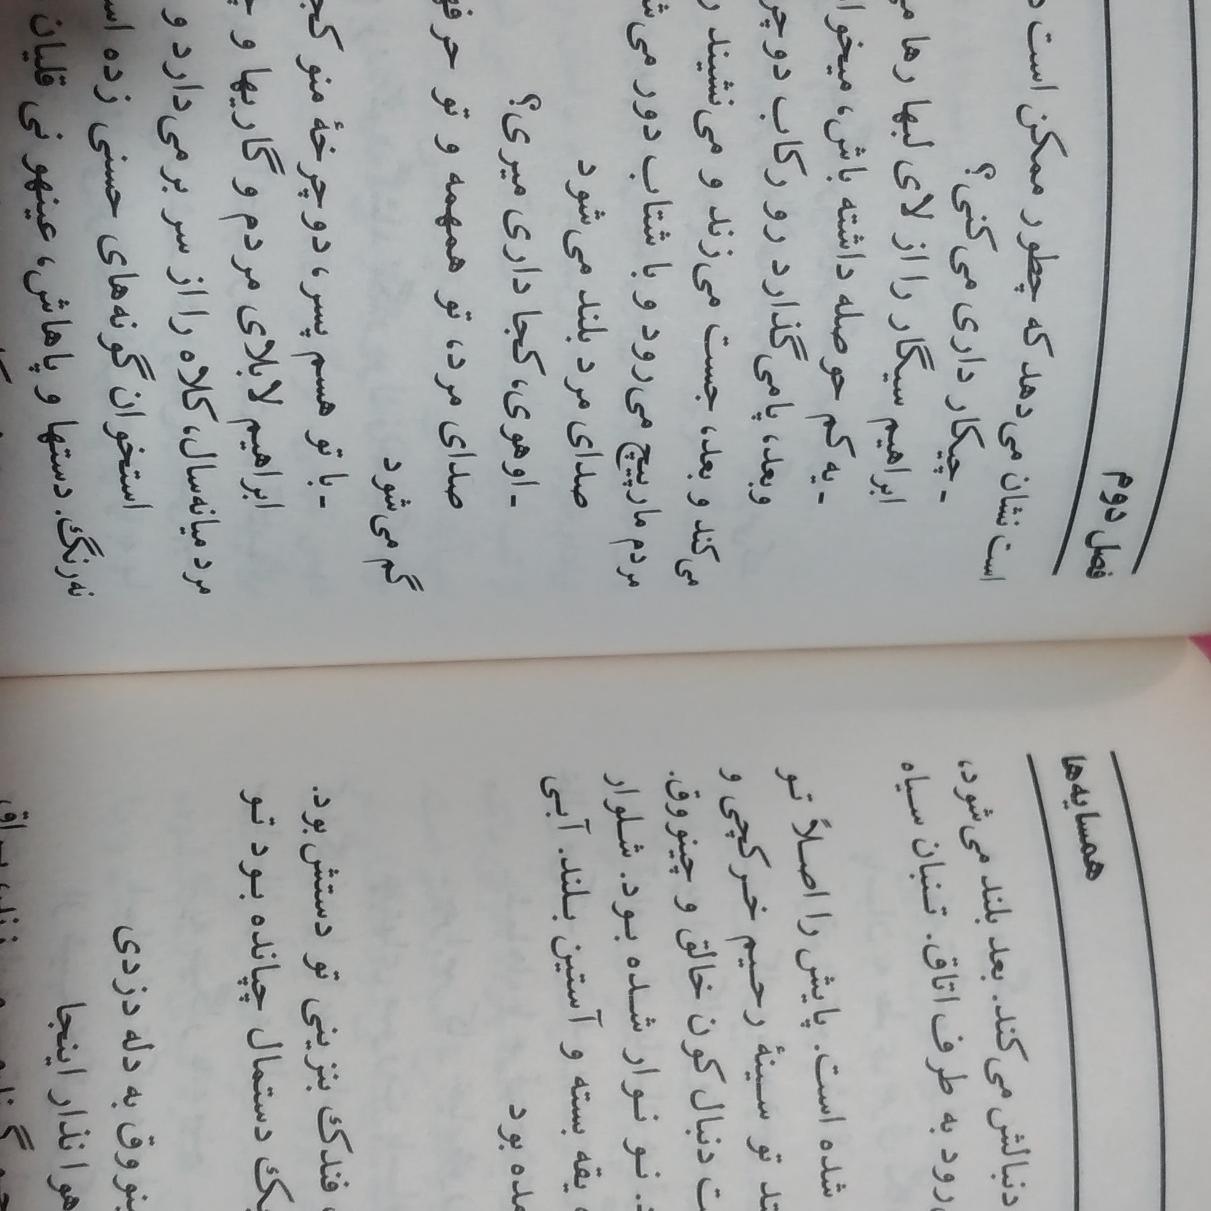 فصل دوم
است نشان می‌دهد که چطور ممکن است
- چیکار داری می‌کنی؟
ابراهیم سیگار را از لای لبها رها
- یه کم حوصله داشته باش، میخوا
و بعد، پا می‌گذارد رو رکاب دوچر
می‌کند و بعد، جست می‌زند و می‌نشیند
مردم مارپیچ می‌رود و با شتاب دور می‌ش
صدای مرد بلند می‌شود
- اوهوی، کجا داری میری؟
صدای مرد، تو همهمه و تو حرفها
گم می‌شود
- با تو هسم پسر، دوچرخهٔ منو کج
ابراهیم لابلای مردم و گاریها و
مرد میانه‌سال، کلاه را از سر برمی‌دارد و
استخوان گونه‌های حسنی زده اس
نه‌رنگ. دستها و پاهاش، عینهو نی قلیان
همسایه‌ها
دنبالش می‌کند. بعد بلند می‌شود،
رود به طرف اتاق. تنبان سیاه
شده است. پایش را اصلاً تو
تد تو سینهٔ رحیم خرکچی و
ت دنبال کون خالق و چینووق.
د. نو نوار شده بود. شلوار
یقه بسته و آستین بلند. آبی
مده بود
فندک بنزینی تو دستش بود.
یک دستمال چپانده بود تو
ینووق به دله دزدی
هوا نذار اینجا